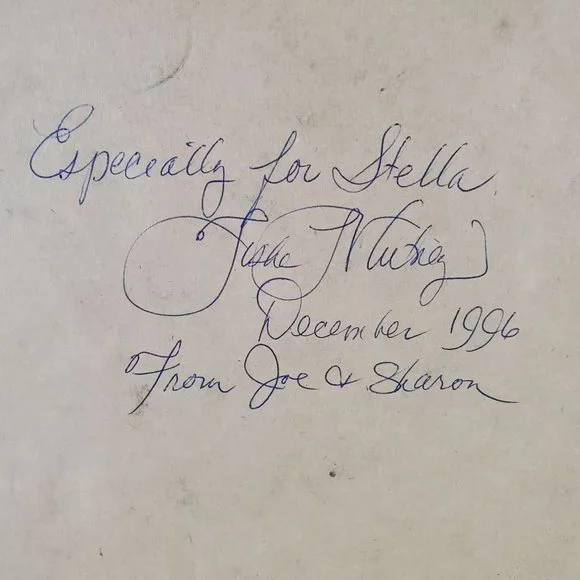 Especially for Stella
December 1996
From Joe & Sharon